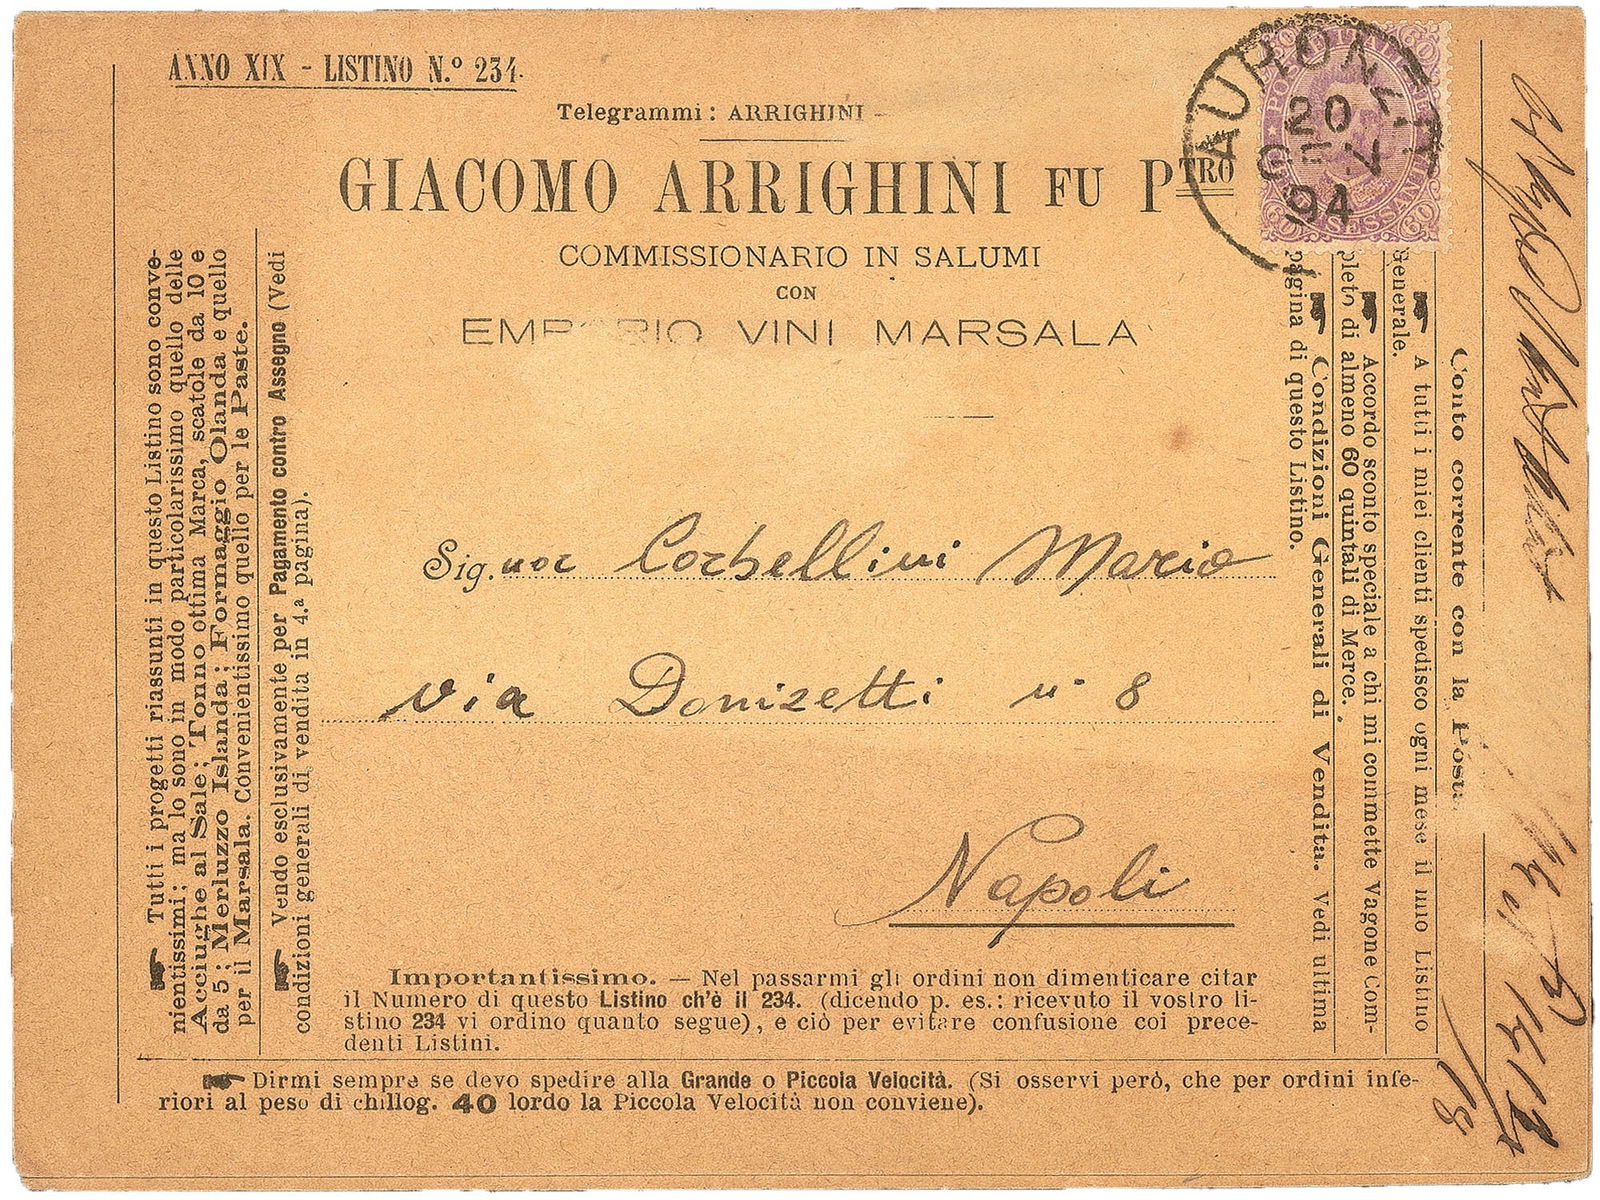 ANNO XIX - LISTINO N.º 234.
Telegrammi: ARRIGHINI
GIACOMO ARRIGHINI FU PTRO
COMMISSIONARIO IN SALUMI
CON
EMPORIO VINI MARSALA
AURONZO
20
94
POSTE ITALIANE
60
SESSANTA
Sig.nor Corbellini Mario
via Donizetti n. 8
Napoli
Importantissimo. — Nel passarmi gli ordini non dimenticare citar
il Numero di questo Listino ch'è il 234. (dicendo p. es.: ricevuto il vostro li-
stino 234 vi ordino quanto segue), e ciò per evitare confusione coi prece-
denti Listini.
☛ Dirmi sempre se devo spedire alla Grande o Piccola Velocità. (Si osservi però, che per ordini infe-
riori al peso di chillog. 40 lordo la Piccola Velocità non conviene).
☛ Tutti i progetti riassunti in questo Listino sono conve-
nientissimi; ma lo sono in modo particolarissimo quello delle
Acciughe al Sale; Tonno ottima Marca, scatole da 10 e
da 5; Merluzzo Islanda; Formaggio Olanda e quello
per il Marsala. Convenientissimo quello per le Paste.
☛ Vendo esclusivamente per Pagamento contro Assegno (Vedi
condizioni generali di vendita in 4.ª pagina).
Conto corrente con la Posta
☛ A tutti i miei clienti spedisco ogni mese il mio Listino
Generale.
☛ Accordo sconto speciale a chi mi commette Vagone Com-
pleto di almeno 60 quintali di Merce.
☛ Condizioni Generali di Vendita. Vedi ultima
pagina di questo Listino.